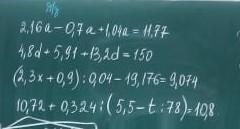 2,16a-0,7a+1,04a=11,77
4,8d+5,91+13,2d=150
(2,3x+0,9):0,04-19,176=9,074
10,72+0,324:(5,5-t:78)=10,8